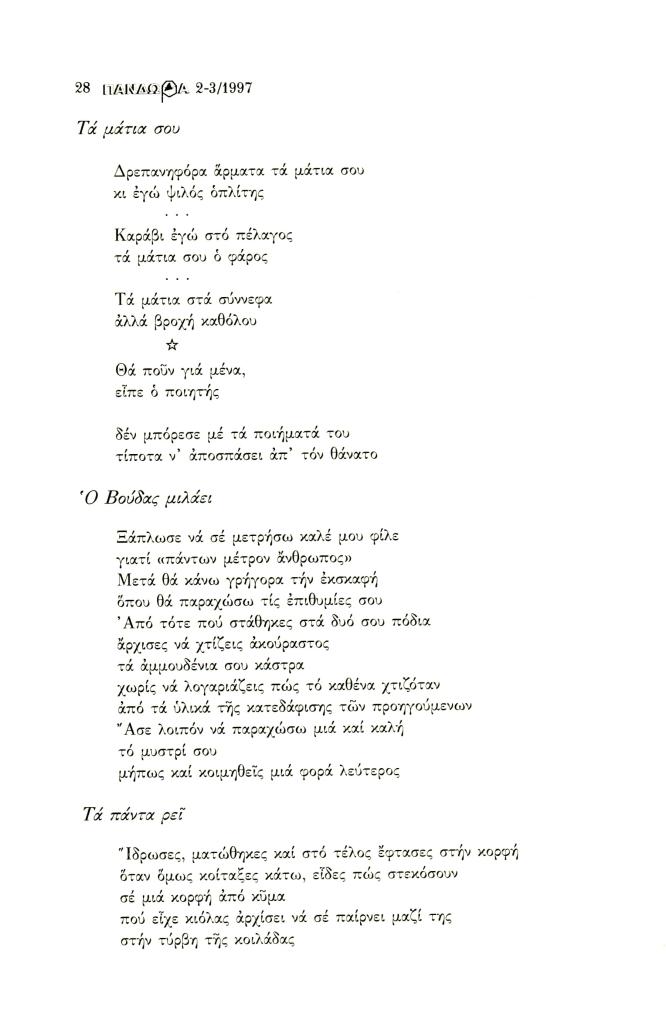 28 ΠΑΝΔΩΡΑ 2-3/1997
Τά μάτια σου
Δρεπανηφόρα ἅρματα τά μάτια σου
κι ἐγώ ψιλός ὁπλίτης
. . .
Καράβι ἐγώ στό πέλαγος
τά μάτια σου ὁ φάρος
. . .
Τά μάτια στά σύννεφα
ἀλλά βροχή καθόλου
☆
Θά ποῦν γιά μένα,
εἶπε ὁ ποιητής
δέν μπόρεσε μέ τά ποιήματά του
τίποτα ν' ἀποσπάσει ἀπ' τόν θάνατο
Ὁ Βούδας μιλάει
Ξάπλωσε νά σέ μετρήσω καλέ μου φίλε
γιατί «πάντων μέτρον ἄνθρωπος»
Μετά θά κάνω γρήγορα τήν ἐκσκαφή
ὅπου θά παραχώσω τίς ἐπιθυμίες σου
Ἀπό τότε πού στάθηκες στά δυό σου πόδια
ἄρχισες νά χτίζεις ἀκούραστος
τά ἀμμουδένια σου κάστρα
χωρίς νά λογαριάζεις πώς τό καθένα χτιζόταν
ἀπό τά ὑλικά τῆς κατεδάφισης τῶν προηγούμενων
Ἄσε λοιπόν νά παραχώσω μιά καί καλή
τό μυστρί σου
μήπως καί κοιμηθεῖς μιά φορά λεύτερος
Τά πάντα ρεῖ
Ἵδρωσες, ματώθηκες καί στό τέλος ἔφτασες στήν κορφή
ὅταν ὅμως κοίταξες κάτω, εἶδες πώς στεκόσουν
σέ μιά κορφή ἀπό κῦμα
πού εἶχε κιόλας ἀρχίσει νά σέ παίρνει μαζί της
στήν τύρβη τῆς κοιλάδας